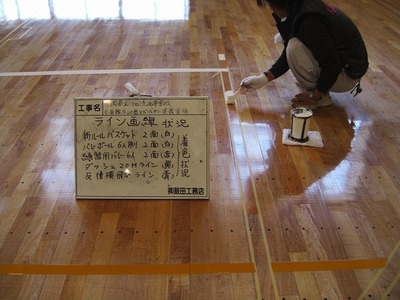 工事名
ライン画線 状況
新ルールバスケット 2面(白)
バレーボール6人制 2面(白)
練習用バレー6人 2面(青)
ダッシュ20Mライン(黄)
反復横飛びライン(青)
着色状況
㈱飯田工務店